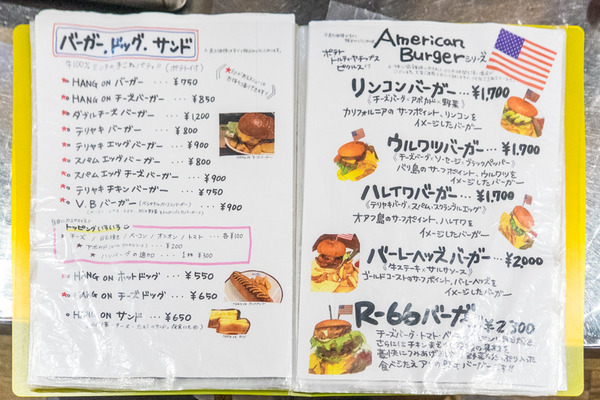 バーガー、ドッグ、サンド
HANG ON バーガー … ¥750
HANG ON チーズバーガー … ¥850
ダブルチーズ バーガー … ¥1,200
テリヤキ バーガー … ¥800
テリヤキ エッグ バーガー … ¥900
スパム エッグ バーガー … ¥800
スパム エッグ チーズ バーガー … ¥900
テリヤキ チキン バーガー … ¥750
V.B バーガー … ¥900
トッピングいろいろ
チーズ / ベーコン / オニオン / トマト … 各¥100
¥200
¥300
HANG ON ホットドッグ … ¥550
HANG ON チーズドッグ … ¥650
HANG ON サンド … ¥650
American
Burgerシリーズ
ポテト
トルティヤチップス
ピクルス
リンコンバーガー … ¥1,700
《チーズバーグ・アボカド・野菜》
カリフォルニアのサーフポイント、リンコンを
イメージしたバーガー
ウルワツバーガー … ¥1,700
《チーズバーグ・ソーセージ・ブラックペッパー》
バリ島のサーフポイント、ウルワツを
イメージしたバーガー
ハレイワバーガー … ¥1,700
《テリヤキバーグ・スパム・スクランブルエッグ》
オアフ島のサーフポイント、ハレイワを
イメージしたバーガー
バーレーヘッズバーガー … ¥2,000
《牛ステーキ・サルサソース》
ゴールドコーストのサーフポイント、バーレーヘッズを
イメージしたバーガー
R-66バーガー ¥2,300
チーズバーグ・トマト・
さらにチキン
豪快につみあげ
食べごたえアリの バーガーです!!